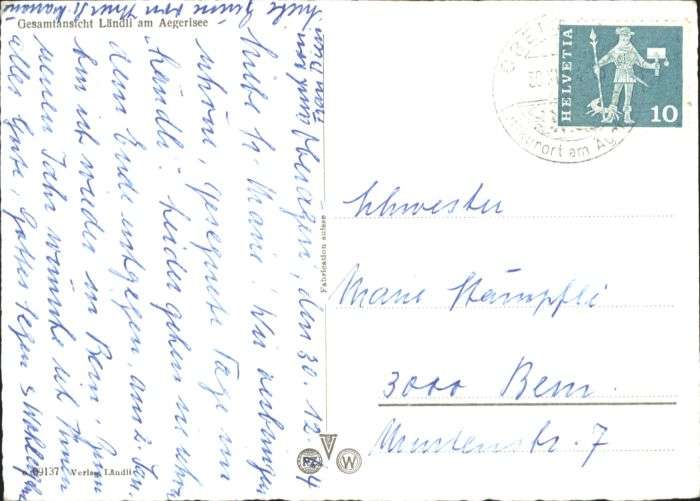 Gesamtansicht Ländli am Aegerisee
Oberägeri, den 30.12.
Liebe Sr. Marie! Wir verbringen
schöne, gesegnete Tage im
Ländli. Leider gehen sie schon
dem Ende entgegen, am 2. Jan.
bin ich wieder in Bern. Zum
neuen Jahr wünsche ich Ihnen
alles Gute, Gottes Segen
Liebe Grüsse von
HELVETIA
10
Kurort am
Schwester
Marie Stämpfli
3000 Bern
Muristr. 7
Fabrication suisse
09137 Verlag Ländli
W